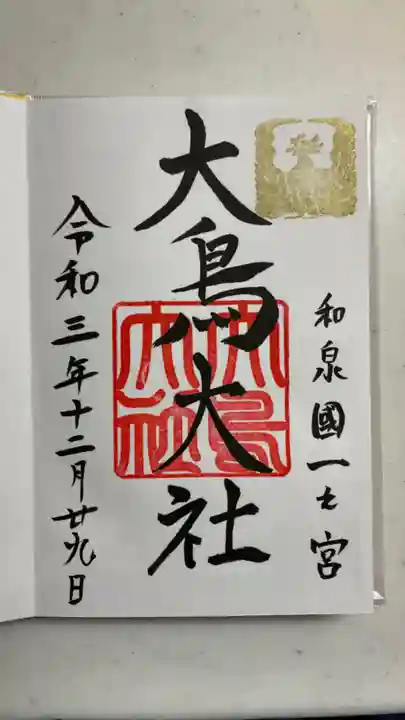 和泉國一之宮
大鳥大社
大鳥大社
令和三年十二月廿九日